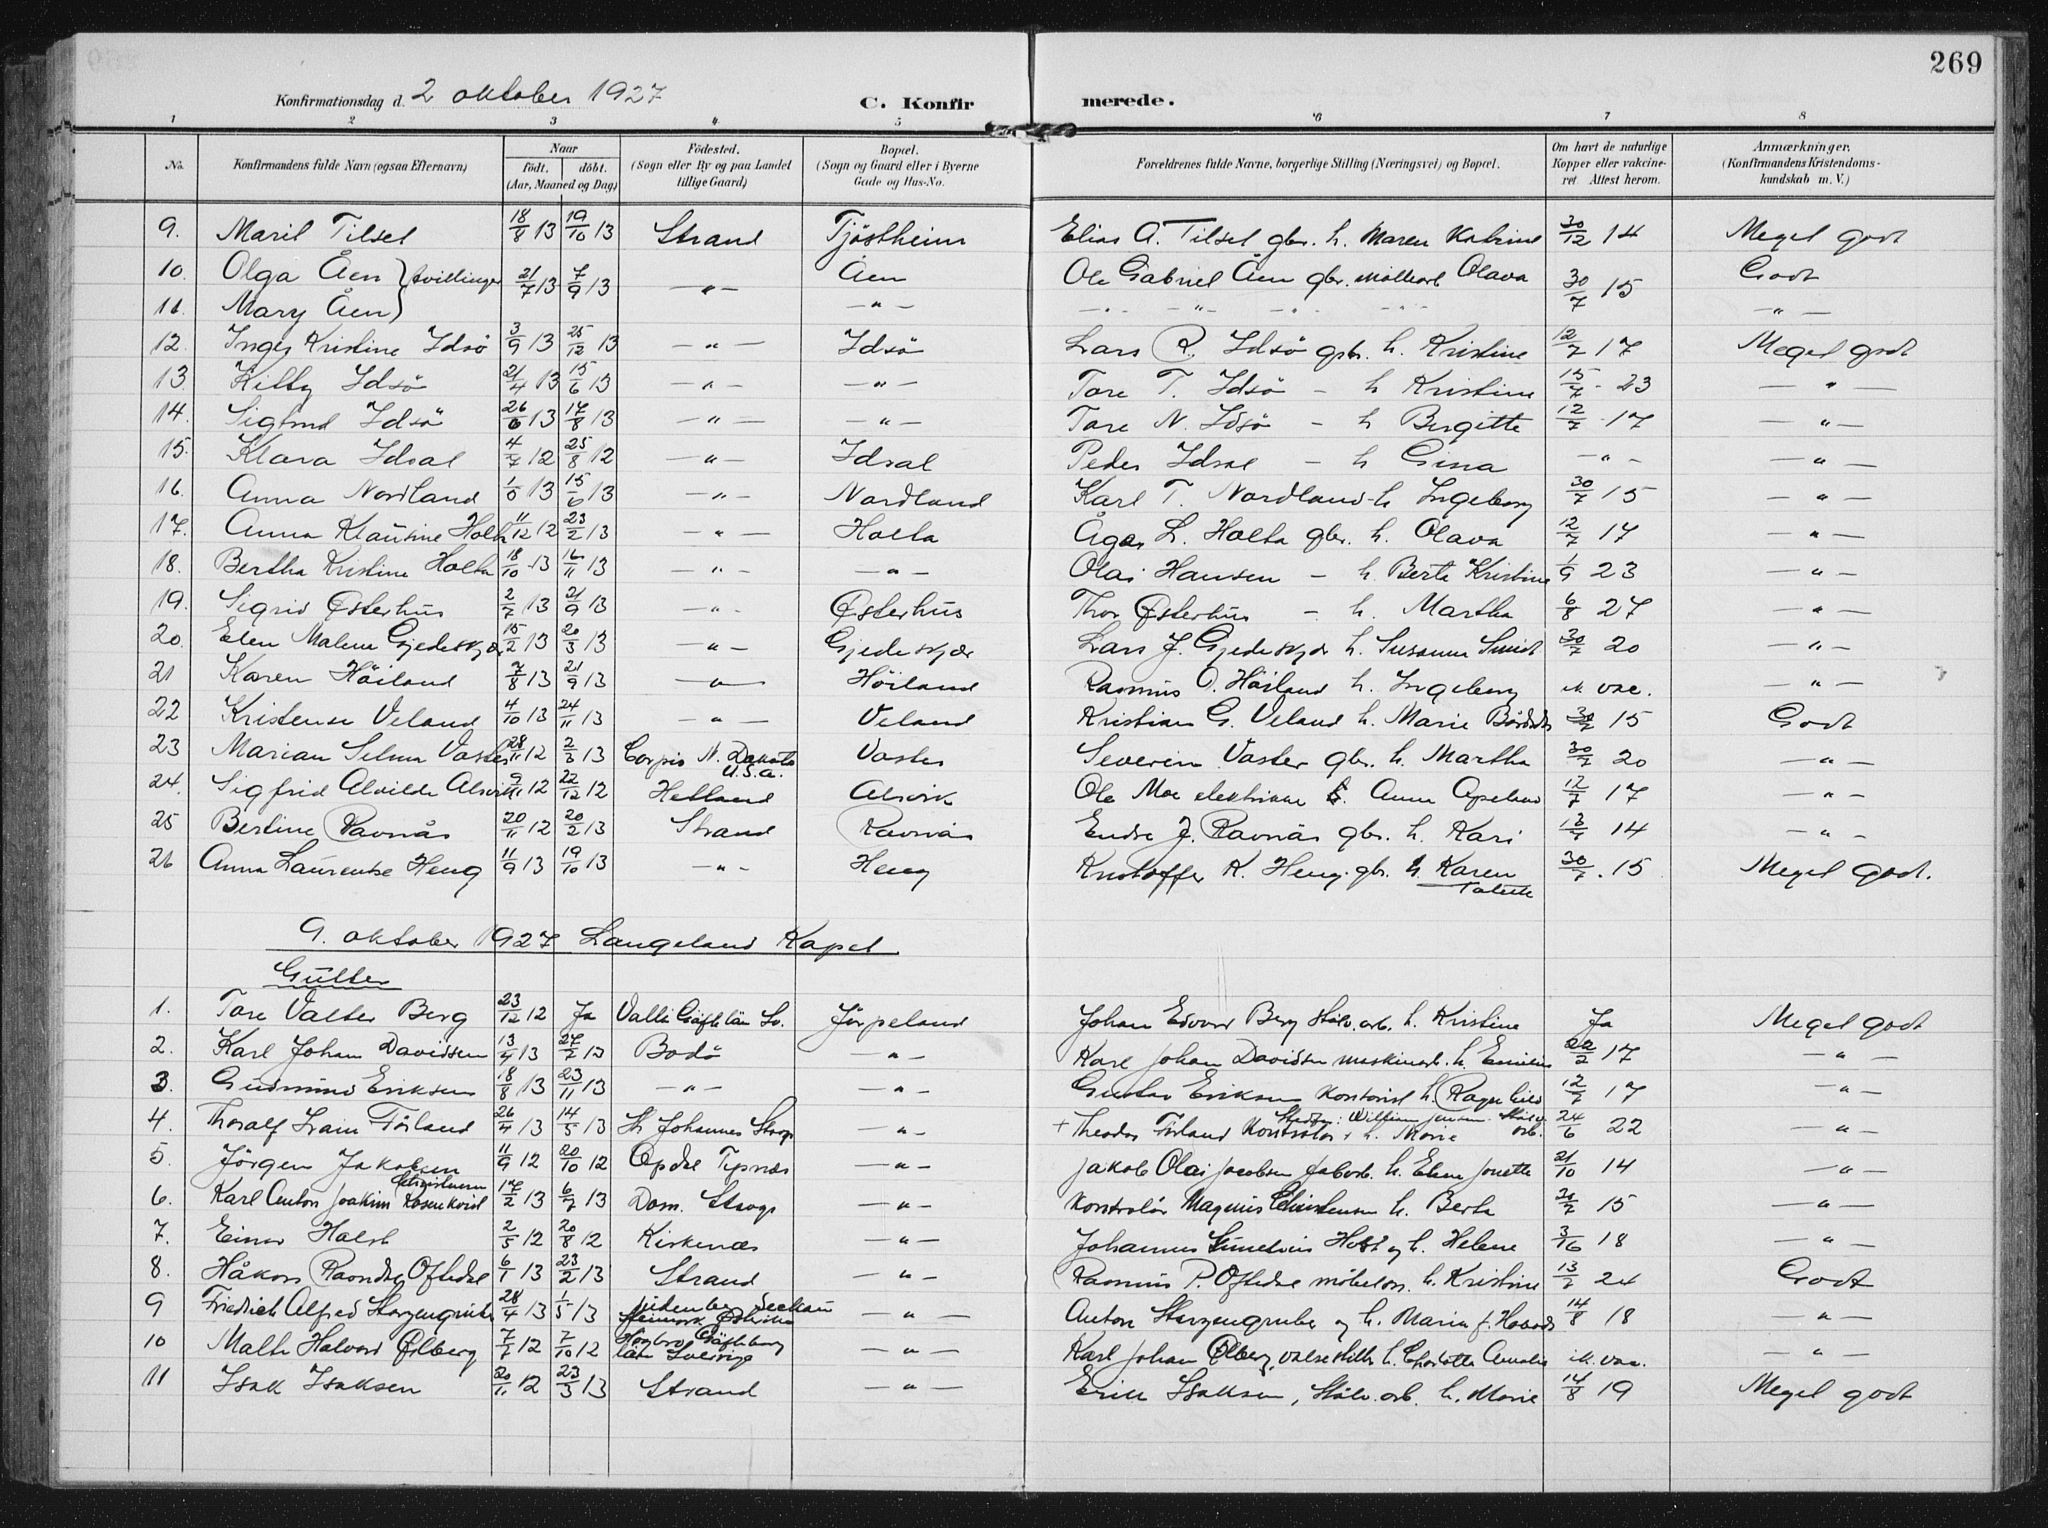 269
Konfirmationsdag d. 2 oktober 1927 C. Konfirmerede.
1 2 3 4 5 6 7 8
No. Konfirmandens fulde Navn (ogsaa Efternavn) Naar født. døbt. (Aar, Maaned og Dag) Fødested. (Sogn eller By og paa Landet tillige Gaard) Bopæl. (Sogn og Gaard eller i Byerne Gade og Hus-No. Forældrenes fulde Navne, borgerlige Stilling (Næringsvei) og Bopæl. Om havt de naturlige Kopper eller vakcineret. Attest herom. Anmærkninger. (Konfirmandens Kristendomskundskab m. V.)
9. Maril Tilset 18/8 13 19/10 13 Strand Tjöstheim Elias A. Tilset gbr. h. Maren Katrine 30/12 14 Meget godt
10. Olga Åen } tvillinger 21/7 13 7/9 13 —"— Åen Ole Gabriel Åen gbr. Olava 30/7 15 Godt
11. Mary Åen } —"— —"— —"— —"—
12. Inger Kristine Idsö 3/9 13 25/12 13 —"— Idsö Lars R. Idsö gbr. h. Kristine 12/7 17 Meget godt
13. Kitty Idsö 21/4 13 15/6 13 —"— —"— Tore T. Idsö — h Kristine 15/7 23 —"—
14. Sigfrid Idsö 26/6 13 17/8 13 —"— —"— Tore N. Idsö — h Birgitte 12/7 17 —"—
15. Klara Idsal 4/7 12 25/8 12 —"— Idsal Peder Idsal — h Gina —"— —"—
16. Anna Nordland 13 15/6 13 —"— Nordland Karl T. Nordland h Ingeborg 30/7 15 —"—
17. Anna Klausine Holta 11/12 12 23/2 13 —"— Holta L. Holta gbr. h. Olava 12/7 17 —"—
18. Bertha Kristine Holta 18/10 13 16/11 13 —"— —"— Olai Hansen — h. Berta Kristine 1/9 23 —"—
19. Sigrid Østerhus 13 21/9 13 —"— Østerhus Thor Østerhus — h. Martha 6/8 27 —"—
20. Elen Malene Gjedeskjær 15/2 13 20/3 13 —"— Gjedeskjær Lars J. Gjedeskjær h. Susanne Smidt 30/7 20 —"—
21 Karen Höiland 7/8 13 21/9 13 —"— Höiland Rasmus O. Höiland h. Ingeborg ik. vac. —"—
22 Kristense Veland 4/10 13 24/11 13 —"— Veland Kristian G. Veland h. Marie 30/7 15 Godt
23 Marian Selma Vaster 28/11 12 2/3 13 N. Dakota U.S.A. Vaster Severin Vaster gbr. h. Martha 30/7 20 —"—
24. Sigfrid Alvilde Alsvik 9/11 12 22/12 12 Hetland Alsvik Ole Moe Anna Apeland 12/7 17 —"—
25 Bertine Ravnås 20/11 12 20/2 13 Strand Ravnås Endre J. Ravnås gbr. h. Kari 13/7 14 —"—
26 Anna Laurentse Heng 11/9 13 19/10 13 —"— Heng Kristoffer K. Heng gbr. h. Karen 30/7 15 Meget godt.
9. oktober 1927 Langeland Kapel.
Gutter
1. Tore Valter Berg 23/12 12 Ja Valli Gäfle län Sv. Jörpeland Johan Edvard Berg stålv. arb. h. Kristine Ja Meget godt
2. Karl Johan Davidsen 13/4 13 13 Bodö —"— Karl Johan Davidsen maskinarb. h. 22/2 17 —"—
3. Gudmund Eriksen 18/8 13 23/11 13 —"— —"— Gustav Eriksen kontorist h. Ragnhild 12/7 17 —"—
4. Thoralf Förland 26/4 13 14/5 13 St Johannes Stvgr —"— + Theodor Förland Kontrolör + h. Marie Stedf: William Jensen Stålv. arb. 24/6 22 —"—
5. Jörgen Jakobsen 11/9 12 20/10 12 —"— Jakob Olai Jacobsen h. Elene Jonette 21/10 14 —"—
6. Karl Anton Joakim Rosenkvist Christensen 17/2 13 6/7 13 Dom. Stvgr —"— Kontrolör Magnus Christensen h. Berta 15 —"—
7. Einar Holst 2/5 12 20/8 12 Kirkenæs —"— Johannes Holst og h. Helene 3/16 18 —"—
8. Håkon Oftedal 6/1 13 23/2 13 Strand —"— Rasmus P. Oftedal h. Kristine 13/7 24 Godt
9 Friedrich Alfred Starzengruber 28/4 13 1/5 13 Seckau —"— Anton Starzengruber og h. Maria 14/8 18 —"—
10 Malte Halvard Ølberg 7/7 12 7/10 12 Högbro Gäfleborg län Sverige —"— Karl Johan Ølberg, h. Charlotta Amalia ik. vac. —"—
11 Isak Isaksen 20/11 12 23/3 13 Strand —"— Erik Isaksen, Stålv. arb. h. Marie 14/8 19 Meget godt